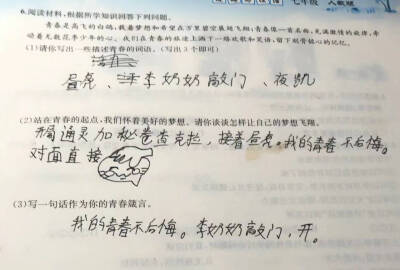 七年级 人教版
6.阅读材料,根据所学知识回答下列问题。
青春是高飞的白鸽,载着梦想和希望在万里碧空展翅飞翔;青春像一首名曲,充满激情的旋律,牵
动着无数花季少年的心。我们在青春的旅途上洒下一路欢歌和笑语,留下刻骨铭心的记忆。
(1)请你写出一些描述青春的词语。(写出3个即可)
昼亮、李奶奶敲门、夜凯
(2)站在青春的起点,我们怀着美好的梦想。请你谈谈怎样让自己的梦想飞翔。
开局通灵加秘卷查克拉,接着昼亮。我的青春不后悔。
对面直接
(3)写一句话作为你的青春箴言。
我的青春不后悔。李奶奶敲门,开。